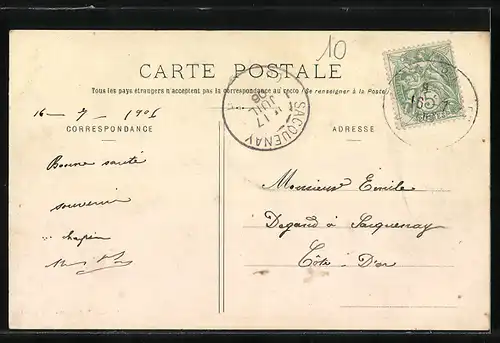 10
CARTE POSTALE
Tous les pays étrangers n'acceptent pas la correspondance au recto (Se renseigner à la Poste)
16 - 7 - 1906
CORRESPONDANCE
ADRESSE
SACQUENAY
17
JUIL
06
5
Bonne santé
souvenir
Monsieur Emile
Degand à Sacquenay
Côte-d'Or